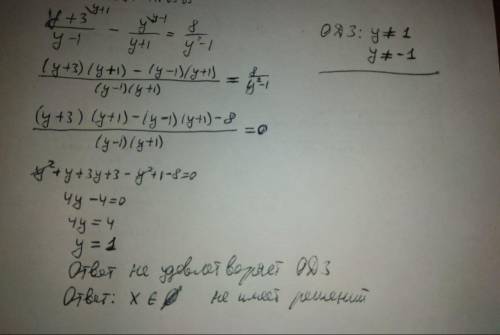 (y+3)^(y+1)/(y-1) - y^(y-1)/(y+1) = 8/(y²-1)
ОДЗ: y ≠ 1
y ≠ -1
((y+3)(y+1) - (y-1)(y+1))/((y-1)(y+1)) = 8/(y²-1)
((y+3)(y+1) - (y-1)(y+1) - 8)/((y-1)(y+1)) = 0
y² + y + 3y + 3 - y² + 1 - 8 = 0
4y - 4 = 0
4y = 4
y = 1
Ответ не удовлетворяет ОДЗ
Ответ: x ∈ ∅ не имеет решений